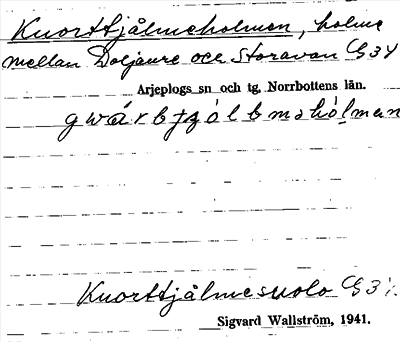 Kuorttjålmeholmen, holme
mellan Doljaure och Storavan G34
Arjeplogs sn och tg. Norrbottens län.
Kuorttjålmesuolo G3
Sigvard Wallström, 1941.